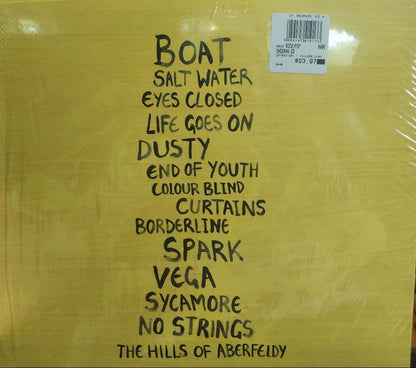 BOAT
SALT WATER
EYES CLOSED
LIFE GOES ON
DUSTY
END OF YOUTH
COLOUR BLIND
CURTAINS
BORDERLINE
SPARK
VEGA
SYCAMORE
NO STRINGS
THE HILLS OF ABERFELDY
ROCK/POP
NR
SHEERAN, ED
$23.97